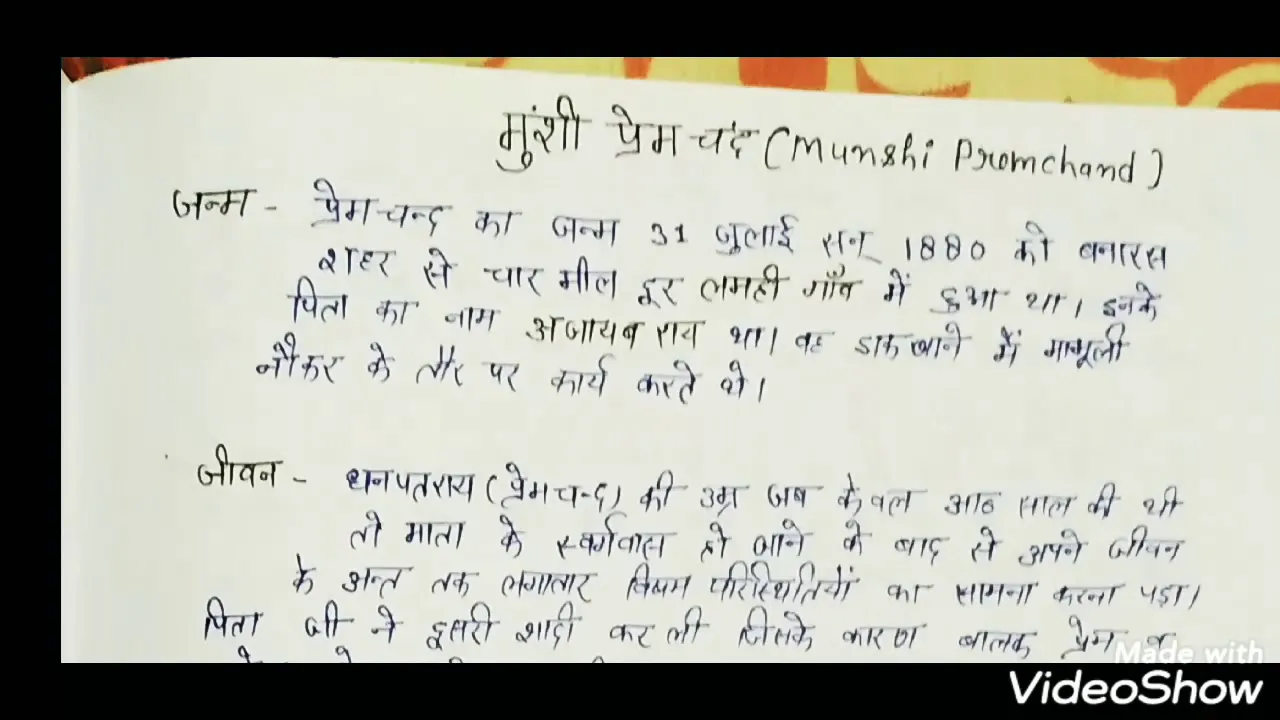 मुंशी प्रेमचंद (Munshi Premchand)
जन्म - प्रेमचन्द का जन्म 31 जुलाई सन् 1880 को बनारस
शहर से चार मील दूर लमही गाँव में हुआ था। इनके
पिता का नाम अजायब राय था। वह डाकखाने में मामूली
नौकर के तौर पर कार्य करते थे।
जीवन - धनपतराय (प्रेमचन्द) की उम्र जब केवल आठ साल की थी
तो माता के स्वर्गवास हो जाने के बाद से अपने जीवन
के अन्त तक लगातार विषम परिस्थितियों का सामना करना पड़ा।
पिता जी ने दूसरी शादी कर ली जिसके कारण बालक प्रेम व
Made with
VideoShow